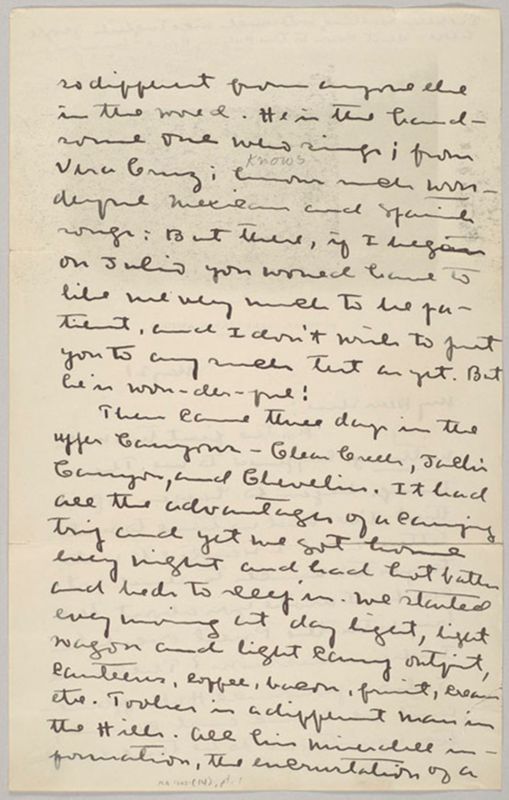 so different from anyone else
in the world. He is the hand-
some one who sings; from
Knows
Vera Cruz; knows such won-
derful Mexican and Spanish
songs: But there, if I began
on Julio you would have to
like me very much to be pa-
tient, and I don't wish to put
you to any such test as yet. But
he is won-der-ful!
Then came three days in the
upper Canyons - Clear Creek, Jack's
Canyon, and Chevelin. It had
all the advantages of a camping
trip and yet we got home
every night and had hot baths
and beds to sleep in. We started
every morning at day light, light
wagon and light camp outfit,
canteens, coffee, bacon, fruit, cream
etc. Tooker is a different man in
the Hills. All his miserable in-
formation, the encrustation of a